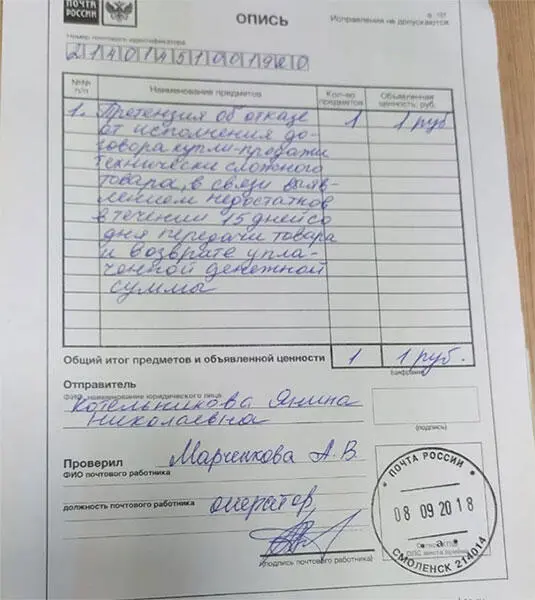 ПОЧТА РОССИИ
ф. 107
ОПИСЬ
Исправления не допускаются
Номер почтового идентификатора
21401451001920
№№ п/п
Наименование предметов
Кол-во предметов
Объявленная ценность, руб.
1. Претензия об отказе 1 1 руб
от исполнения до-
говора купли-продажи
технически сложного
товара, в связи выяв-
лением недостатков
в течении 15 дней со
дня передачи товара
и возврате упла-
ченной денежной
суммы
Общий итог предметов и объявленной ценности 1 1 руб.
(цифрами)
Отправитель
ФИО, наименование юридического лица
Котельникова Янина
Николаевна
(подпись)
Проверил Марченкова А.В.
ФИО почтового работника
должность почтового работника оператор
(подпись почтового работника)
ПОЧТА РОССИИ
08 09 20 18
ОПС места приема
СМОЛЕНСК 214014